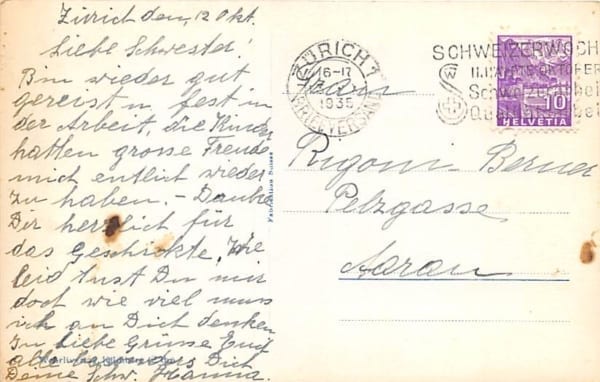 Zürich den, 12 Okt.
Liebe Schwester!
Bin wieder gut
gereist u, fest in
der Arbeit, die Kinder
hatten grosse Freude
mich entlich wieder
zu haben. - Danke
Dir herzlich für
das Geschickte, Wie
leid tust Du mir
doch wie viel muss
ich an Dich denken
In Liebe Grüsse Euch
alle besonders Dich
Deine Schw. Hanna.
ZÜRICH 1
16-17
1935
BRIEFVERSAND
SCHWEIZERWOCH
OKTOBER
10
HELVETIA
Frau
Rigoni-Berner
Pelzgasse
Aarau
Fabrikation Suisse